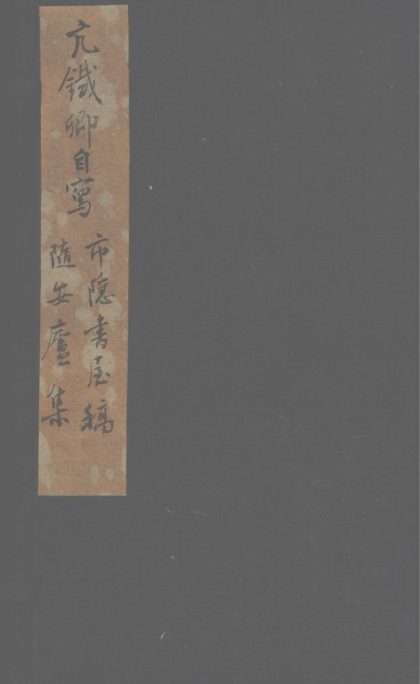 亢鐵卿自寫
市隐書屋稿
随安廬集